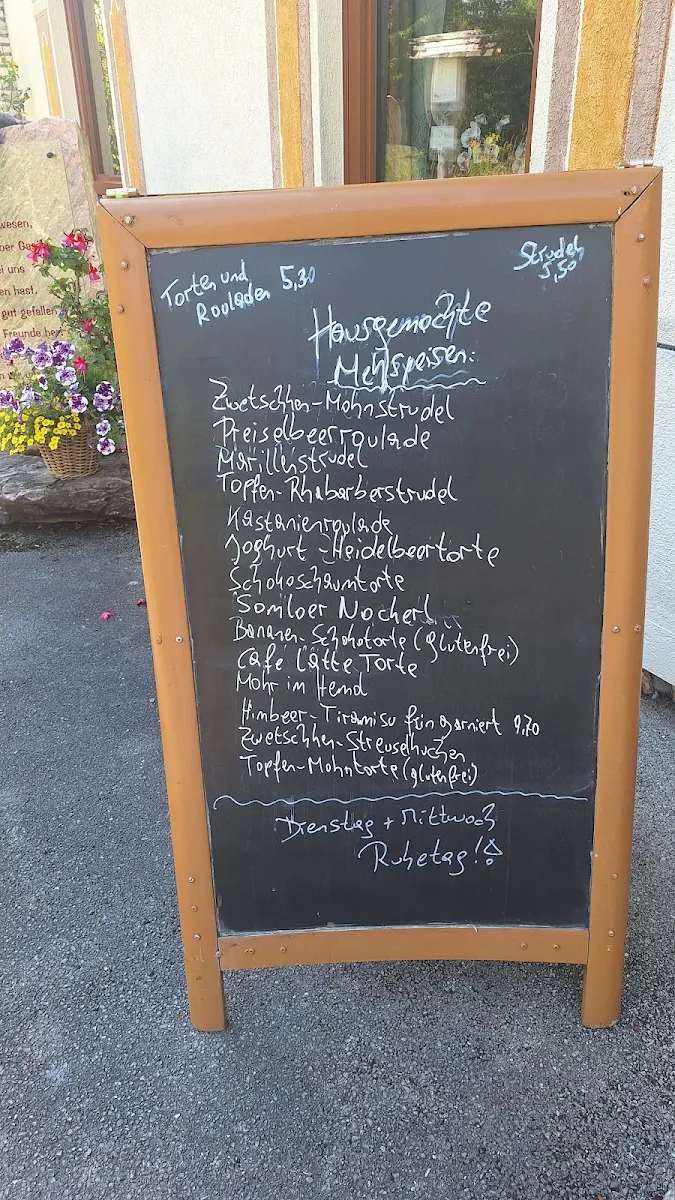 wesen,
ner Gas
ei uns
en hast.
gut gefallen
Freunde her
Torten und
Rouladen 5,30
Strudeln
5,50
Hausgemachte
Mehlspeisen:
Zwetschken-Mohnstrudel
Preiselbeerroulade
Marillenstrudel
Topfen-Rhabarberstrudel
Kastanienroulade
Joghurt-Heidelbeertorte
Schokoschaumtorte
Somloer Nockerl
Bananen-Schokotorte (glutenfrei)
Café Latte Torte
Mohr im Hemd
Himbeer-Tiramisu fein garniert 9,70
Zwetschken-Streuselkuchen
Topfen-Mohntorte (glutenfrei)
Dienstag + Mittwoch
Ruhetag!!